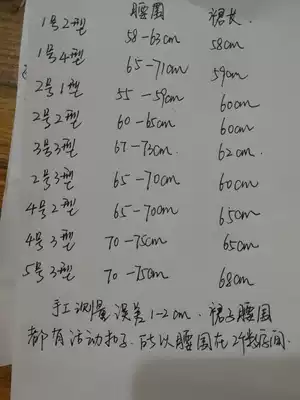 腰围 裙长
1号2型 58-63cm 58cm
1号4型 65-71cm 59cm
2号1型 55-59cm 60cm
2号2型 60-65cm 60cm
3号3型 67-73cm. 62cm.
2号3型 65-70cm 60cm
4号2型 65-70cm 65cm
4号3型 70-75cm 65cm
5号3型 70-75cm 68cm
手工测量误差1-2cm. 裙子腰围
都有活动扣子.所以腰围在2个数后间.